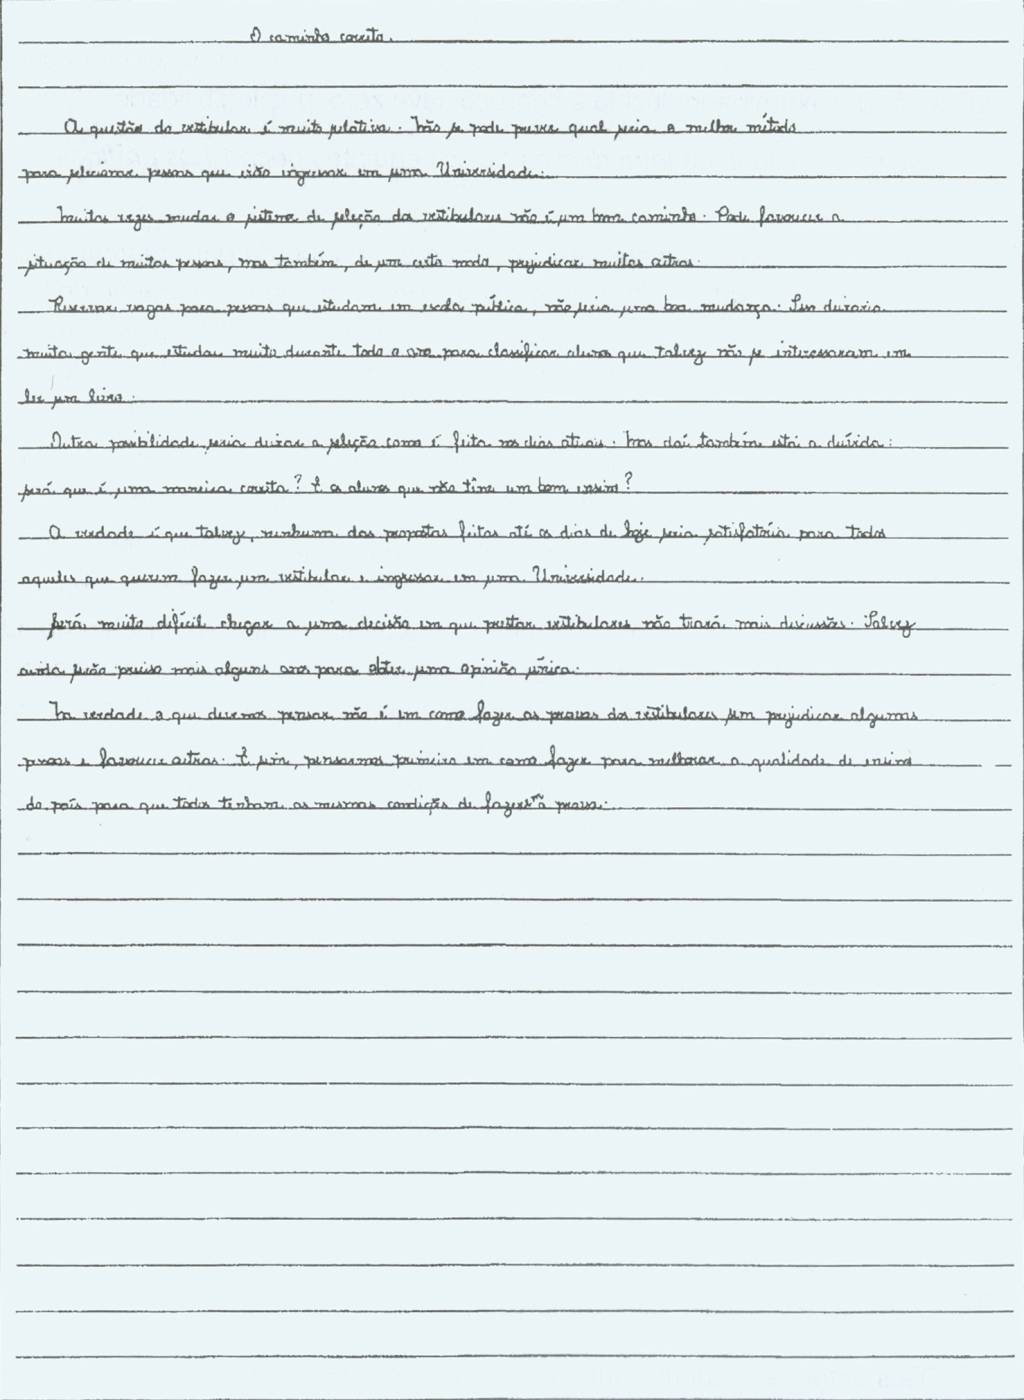 O caminho correto.
A questão do vestibular é muito relativa. Não se pode prever qual seria o melhor método
para selecionar pessoas que irão ingressar em uma Universidade.
Muitas vezes mudar o sistema de seleção dos vestibulares não é um bom caminho. Pode favorecer a
situação de muitas pessoas, mas também, de um certo modo, prejudicar muitas outras.
Reservar vagas para pessoas que estudam em escola pública, não seria uma boa mudança. Isso
muita gente que estudou muito durante todo o ano para classificar alunos que talvez não se interessaram em
ler um livro.
Outra possibilidade seria deixar a seleção como é feita nos dias atuais. Mas daí também está a dúvida:
será que é uma maneira correta? E os alunos que não têm um bom ensino?
A verdade é que talvez, nenhuma das propostas feitas até os dias de hoje seria satisfatória para todos
aqueles que querem fazer um vestibular e ingressar em uma Universidade.
Será muito difícil chegar a uma decisão em que prestar vestibulares não trará mais discussões. Talvez
ainda serão preciso mais alguns anos para obter uma opinião única.
Na verdade o que devemos pensar não é em como fazer as provas dos vestibulares sem prejudicar algumas
pessoas e favorecer outras. E sim, pensarmos primeiro em como fazer para melhorar a qualidade de ensino
do país para que todos tenham as mesmas condições de fazerem a prova.